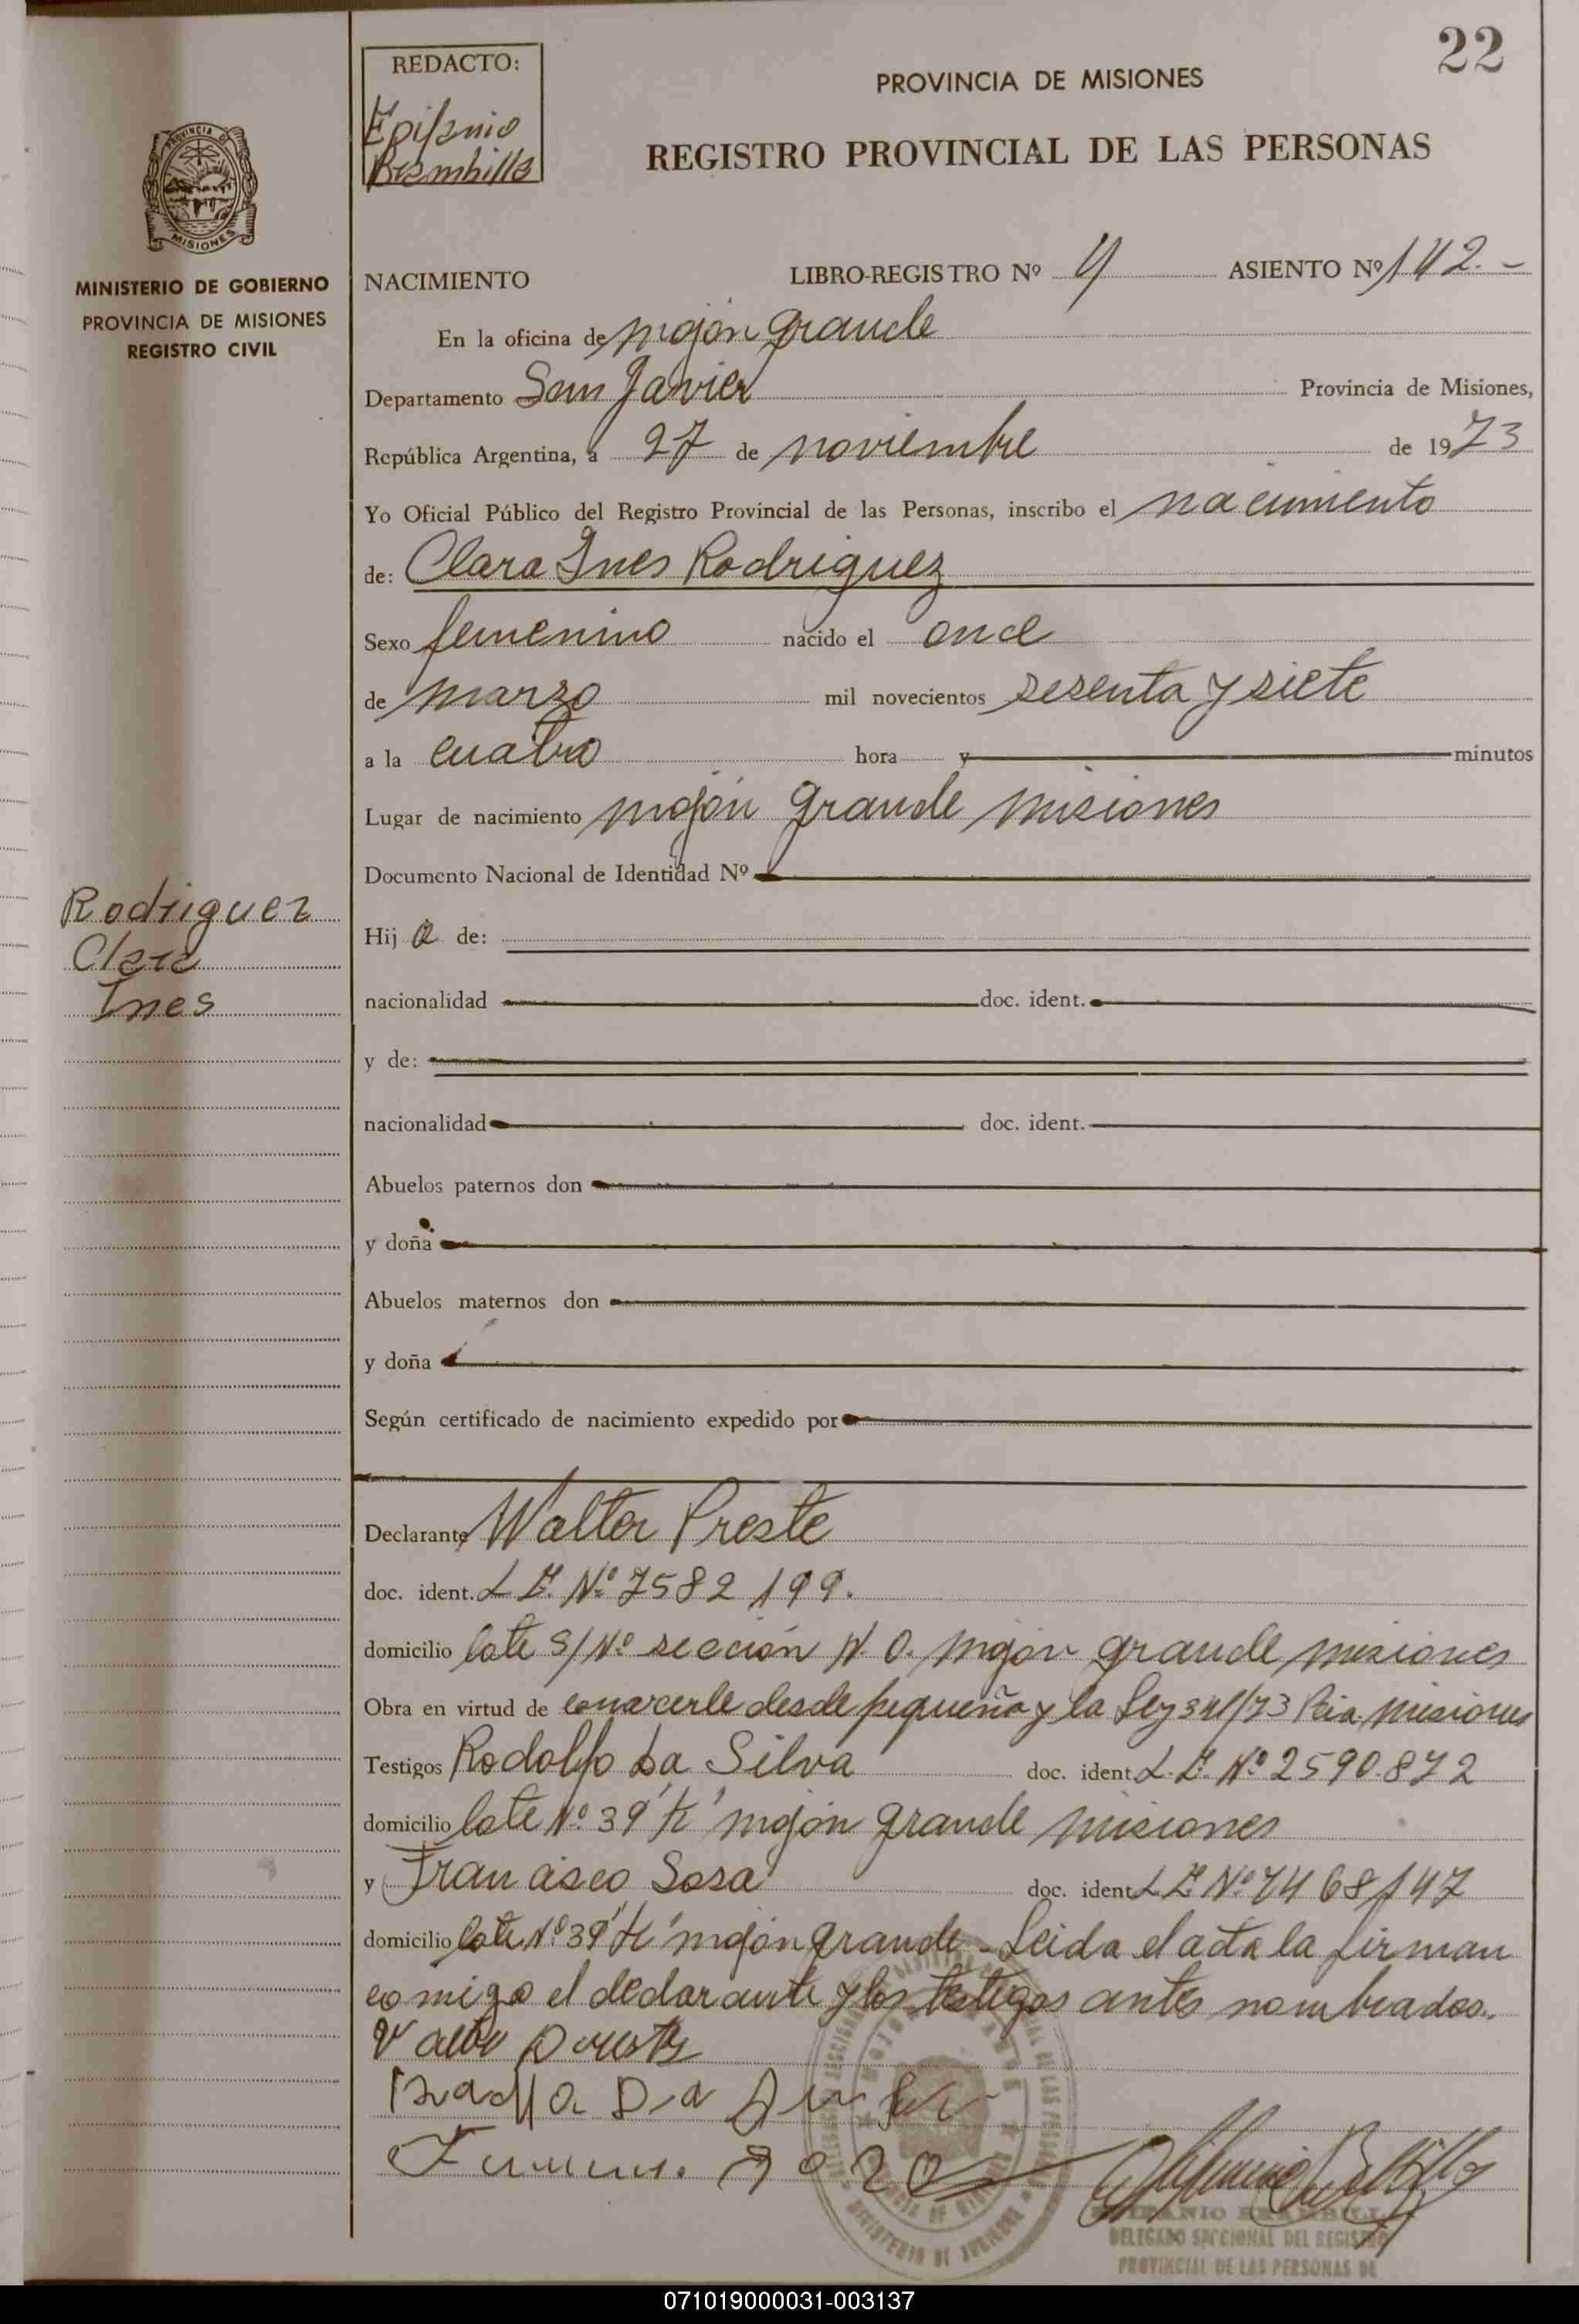 22
REDACTO:
Epifanio
Brambilla
PROVINCIA DE MISIONES
REGISTRO PROVINCIAL DE LAS PERSONAS
PROVINCIA DE
MISIONES
MINISTERIO DE GOBIERNO
PROVINCIA DE MISIONES
REGISTRO CIVIL
NACIMIENTO LIBRO-REGISTRO Nº 4 ASIENTO Nº 142.-
En la oficina de mojón grande
Departamento San Javier Provincia de Misiones,
República Argentina, a 27 de noviembre de 1973
Yo Oficial Público del Registro Provincial de las Personas, inscribo el nacimiento
de: Clara Ines Rodriguez
Sexo femenino nacido el once
de marzo mil novecientos sesenta y siete
a la cuatro hora y minutos
Lugar de nacimiento mojón grande misiones
Documento Nacional de Identidad Nº
Rodriguez
Clara
Ines
Hij a de:
nacionalidad doc. ident.
y de:
nacionalidad doc. ident.
Abuelos paternos don
y doña
Abuelos maternos don
y doña
Según certificado de nacimiento expedido por
Declarante Walter Preste
doc. ident. L E. Nº 7582199.
domicilio lote S/Nº sección N. O. mojón grande misiones
Obra en virtud de conocerle desde pequeña y la Ley 341/73 Pcia. misiones
Testigos Rodolfo Da Silva doc. ident. L. E. Nº 2590.872
domicilio lote Nº 39 mojón grande misiones
y Francisco Sosa doc. ident. L E Nº 7468147
domicilio lote Nº 39 mojón grande - Leida el acta la firman
comigo el declarante y los testigos antes nombrados.
EPIFANIO BRAMBILLA
DELEGADO SECCIONAL DEL REGISTRO
PROVINCIAL DE LAS PERSONAS DE
071019000031-003137